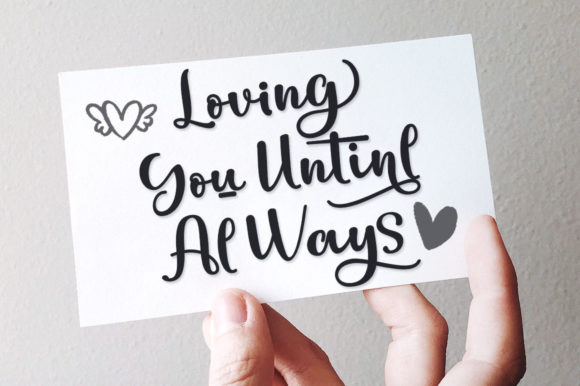 Loving
You Untinl
Al Ways